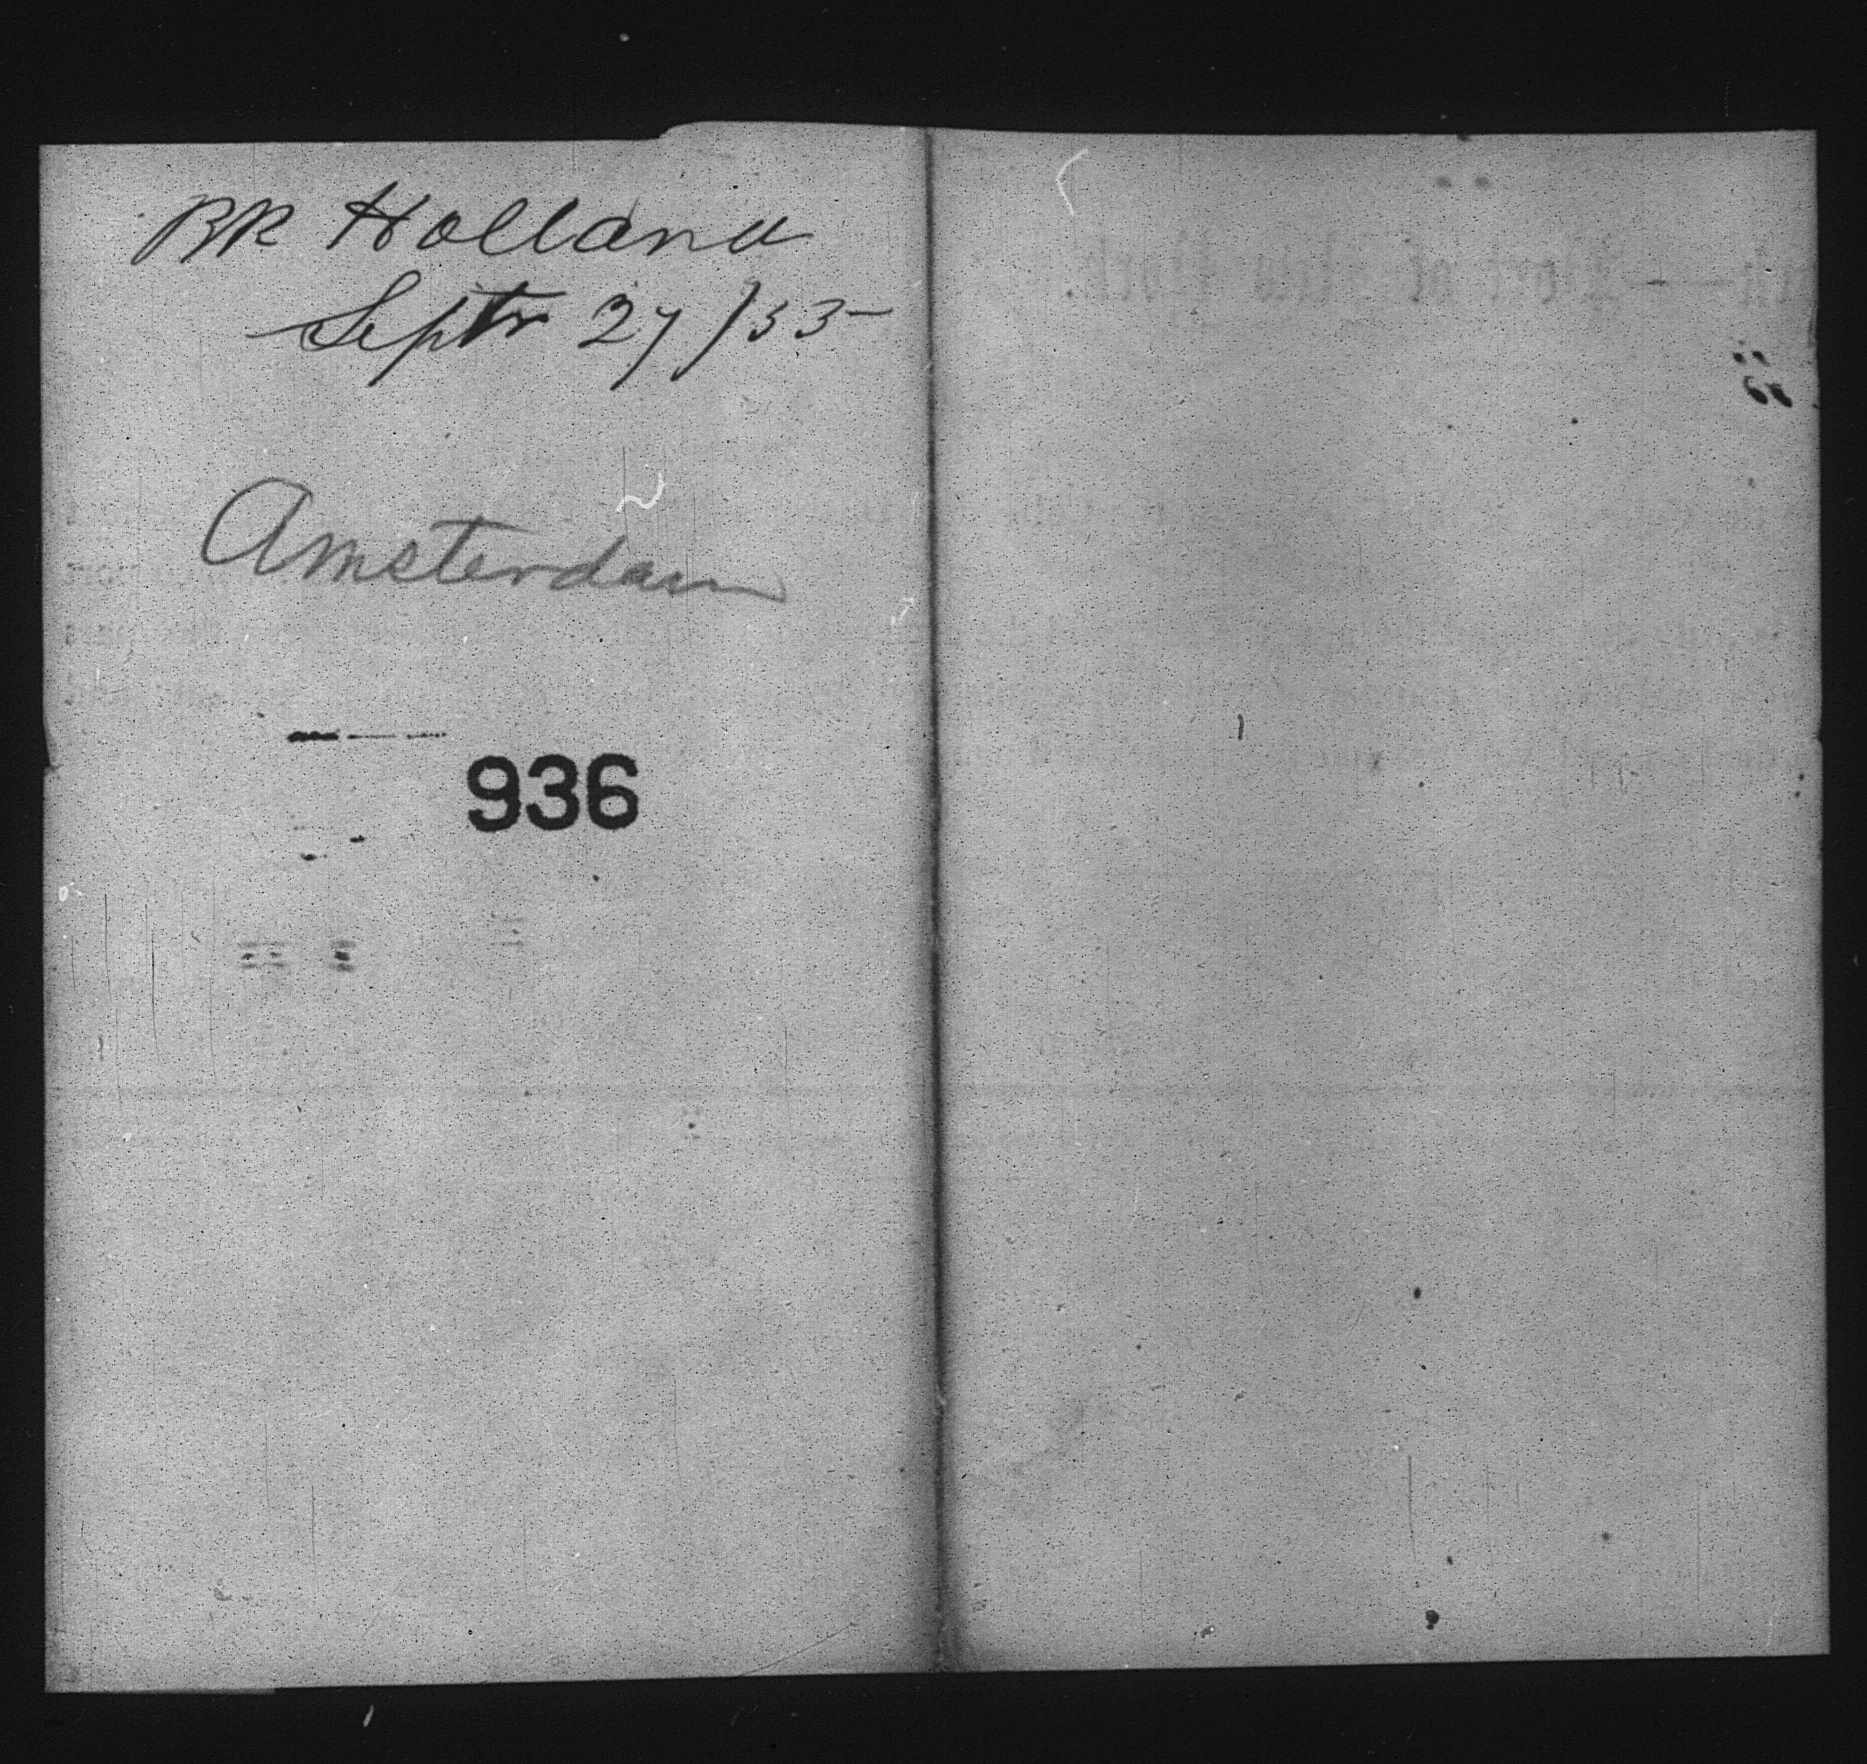 BK Holland
Septr 27/55
Amsterdam
936